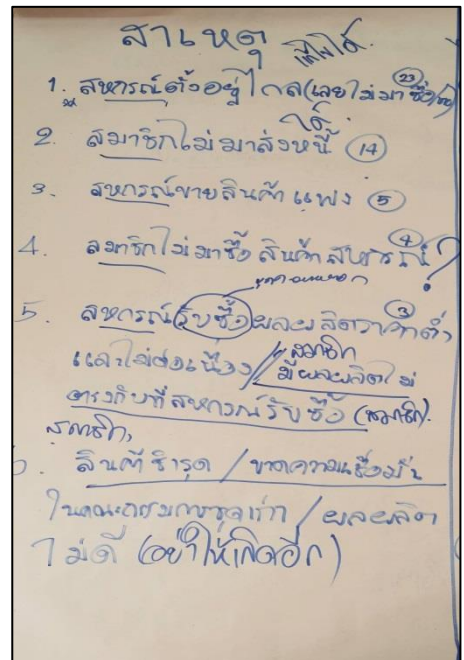 สาเหตุ แก้ไม่ได้.
1. สหกรณ์ตั้งอยู่ไกล(เลยไม่มาซื้อ/ขาย) 23
ได้
2. สมาชิกไม่มาส่งหนี้ 14
3. สหกรณ์ขายสินค้าแพง 5
4. สมาชิกไม่มาซื้อสินค้าสหกรณ์ 4 ?
5. สหกรณ์รับซื้อผลผลิตราคาต่ำ 3
และไม่ต่อเนื่อง/สมาชิก
มีผลผลิตไม่
ตรงกับที่สหกรณ์รับซื้อ (สมาชิก).
สินค้าชำรุด / ขาดความเชื่อมั่น
ในคณะกรรมการชุดเก่า / ผลผลิต
ไม่ดี (อย่าให้เกิดอีก)